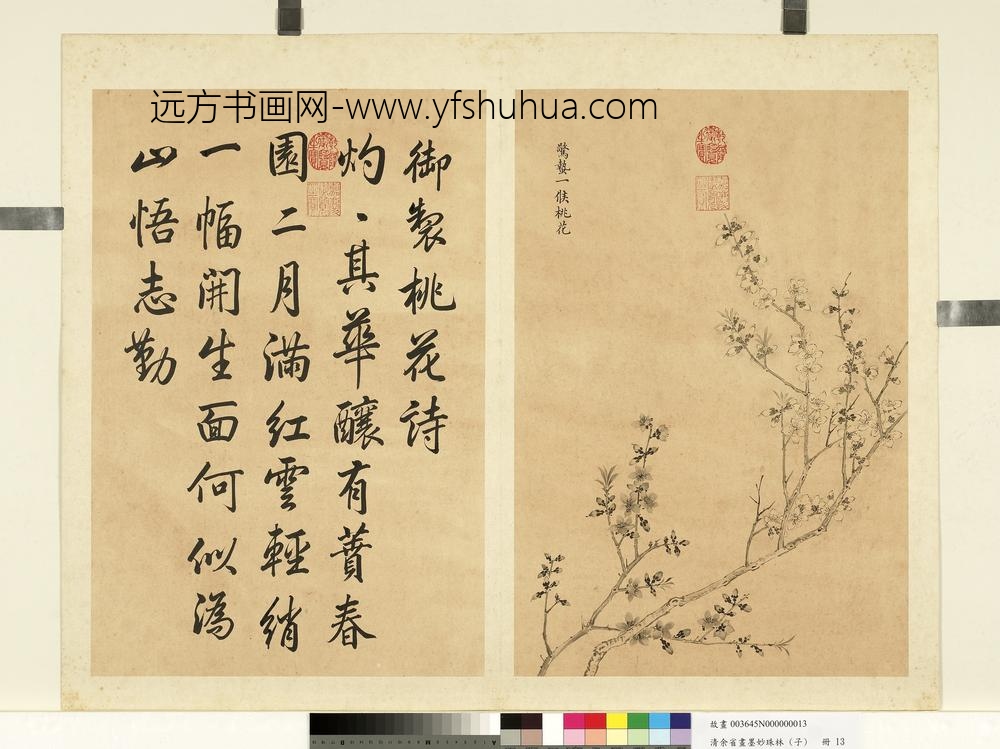 远方书画网-www.yfshuhua.com
驚蟄一候桃花
御製桃花詩
灼丶其華釀有蕡春
園二月滿紅雲輕綃
一幅開生面何似溈
山悟志勤
故畫 003645N000000013
清余省畫墨妙珠林（子） 冊 13